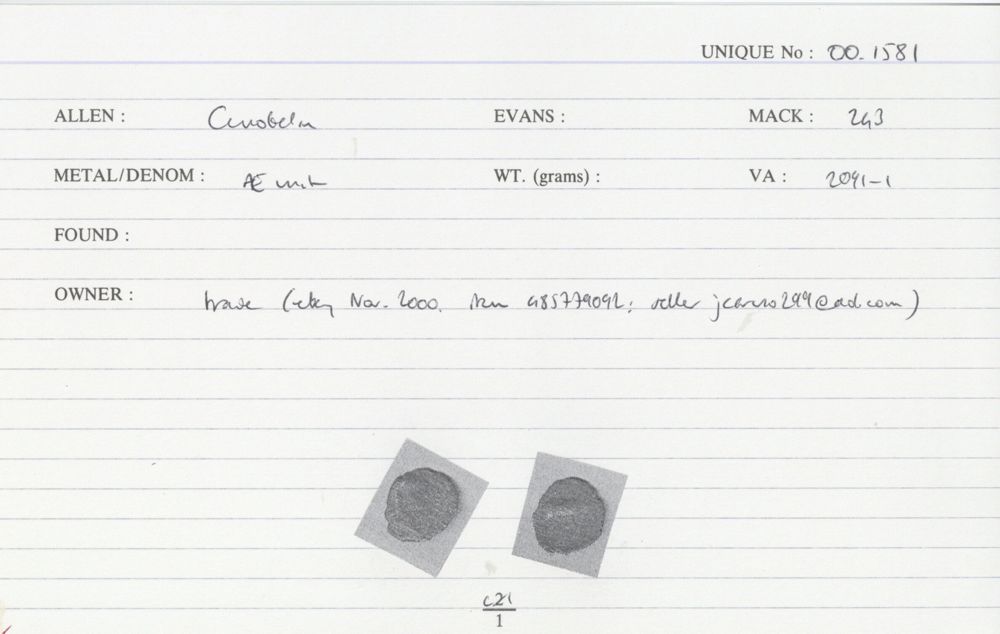 UNIQUE No : 00.1581
ALLEN : Cunobelin EVANS : MACK : 243
METAL/DENOM : Æ unit WT. (grams) : VA : 2091-1
FOUND :
OWNER : trade (ebay Nov. 2000. item 485779092; seller
c21
1